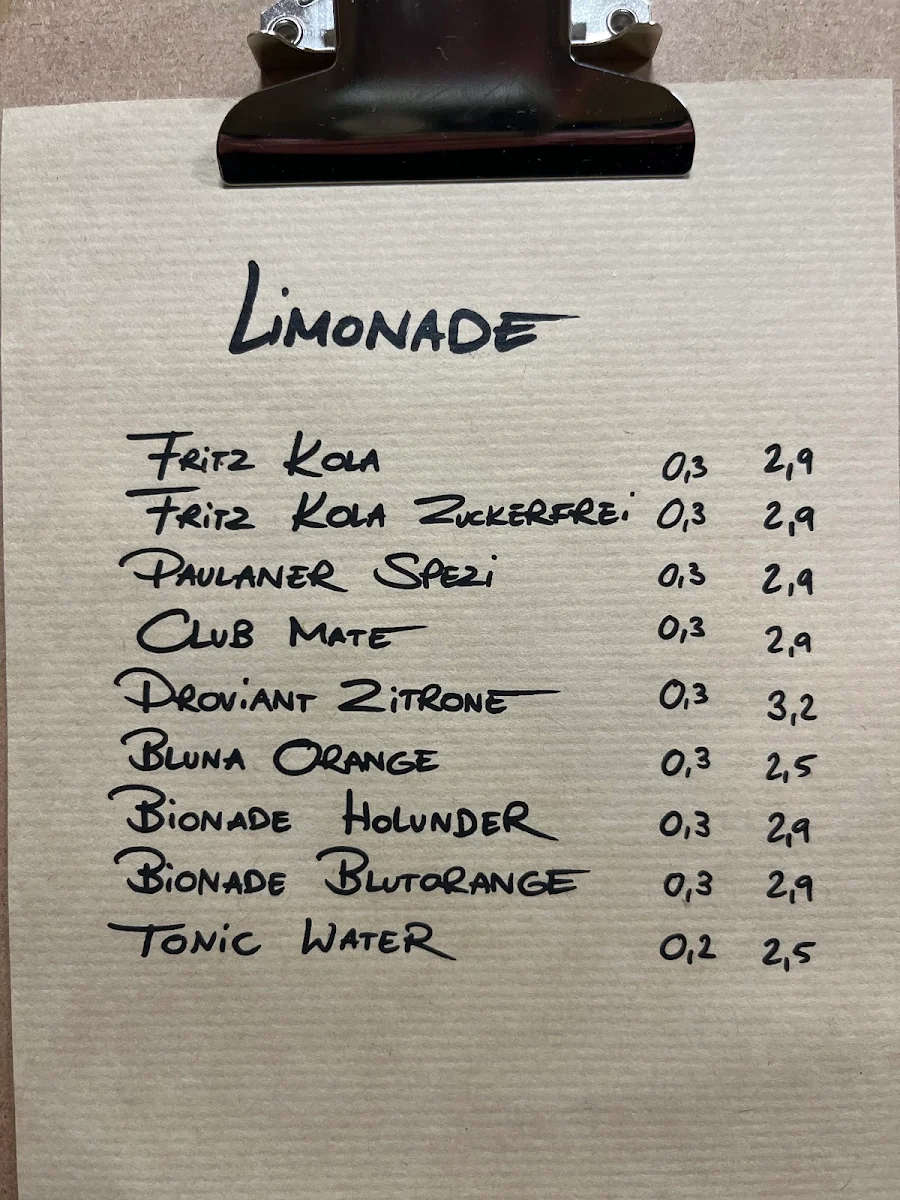 LIMONADE
FRITZ KOLA 0,3 2,9
FRITZ KOLA ZUCKERFREI 0,3 2,9
PAULANER SPEZI 0,3 2,9
CLUB MATE 0,3 2,9
PROVIANT ZITRONE 0,3 3,2
BLUNA ORANGE 0,3 2,5
BIONADE HOLUNDER 0,3 2,9
BIONADE BLUTORANGE 0,3 2,9
TONIC WATER 0,2 2,5